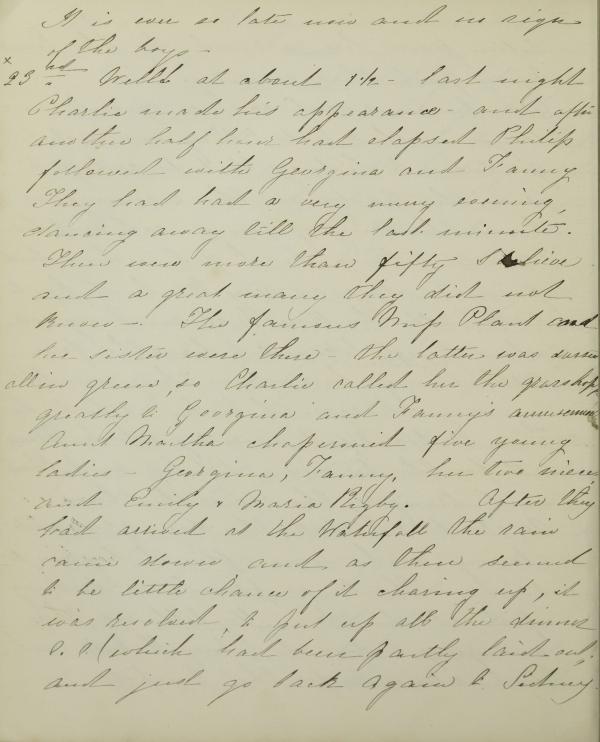 It is ever so late now and no sign
of the boys -
x 23rd Well at about 1½ - last night
Charlie made his appearance - and after
another half hour had elapsed Philip
followed with Georgina and Fanny
They had had a very merry evening,
dancing away till the last minute.
There were more than fifty I believe
and a great many they did not
know -. The famous Miss Plant and
her sister were there - the latter was dressed
all in green, so Charlie called her the grasshopp
greatly to Georgina and Fanny's amusement
Aunt Martha chaperoned five young
ladies - Georgina, Fanny, her two nieces
and Emily & Maria Rigby. After they
had arrived at the Waterfall the rain
came down and as there seemed
to be little chance of it clearing up, it
was resolved, to put up all the dinner
(which had been partly laid out,
and just go back again to Sydney